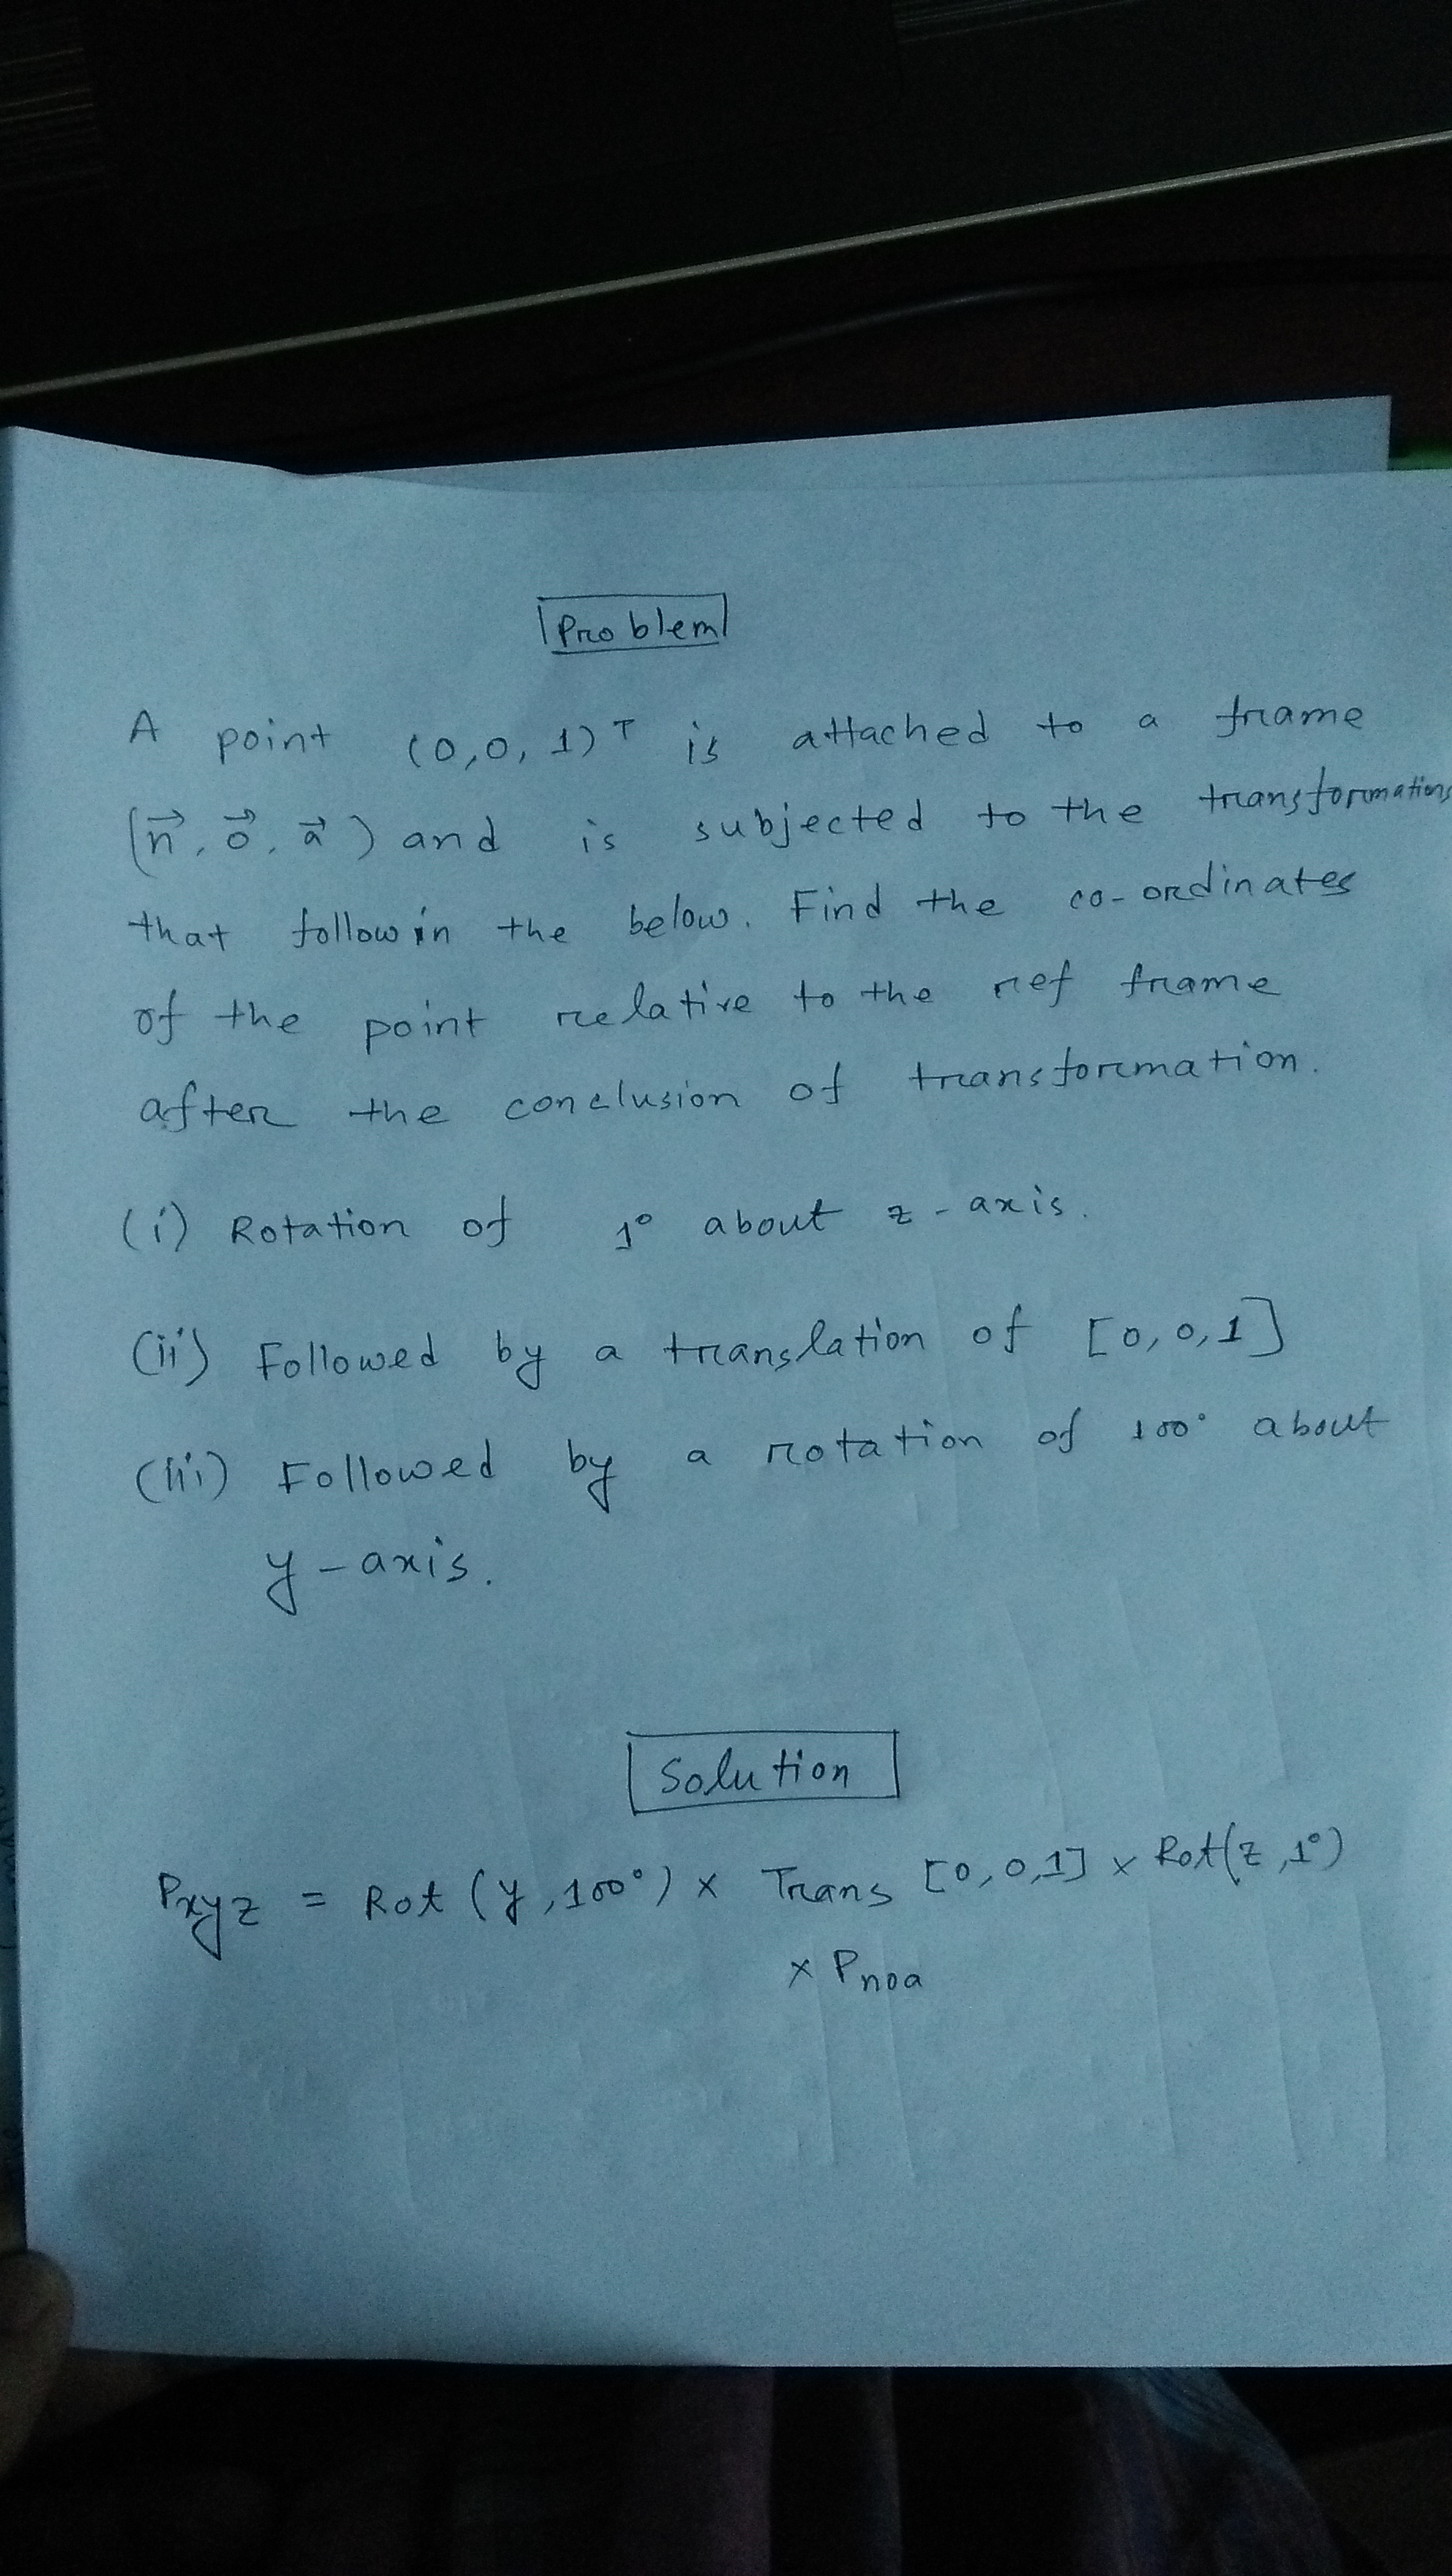 Problem
A point (0,0,1)ᵀ is attached to a frame
(n⃗, o⃗, a⃗) and is subjected to the transformations
that follow in the below. Find the co-ordinates
of the point relative to the ref frame
after the conclusion of transformation.
(i) Rotation of 1° about z-axis.
(ii) Followed by a translation of [0,0,1]
(iii) Followed by a rotation of 100° about
y-axis.
Solution
Pxyz = Rot (y,100°) × Trans [0,0,1] × Rot(z,1°)
× Pnoa